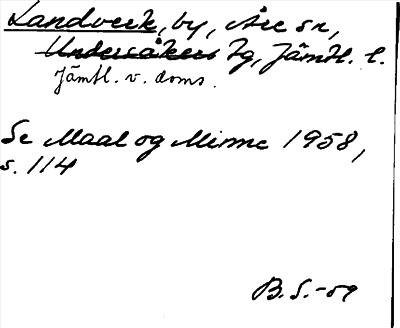 Landverk, by, Åre sn,
Undersåkers tg, Jämtl. l.
Jämtl. v. doms.
Se Maal og Minne 1958,
s. 114
B.S.-59